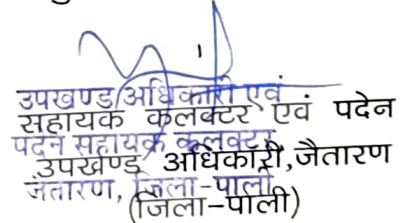 उपखण्ड अधिकारी एवं
सहायक कलक्टर एवं पदेन
पदेन सहायक कलक्टर
उपखण्ड अधिकारी,जैतारण
जैतारण, जिला-पाली
(जिला-पाली)